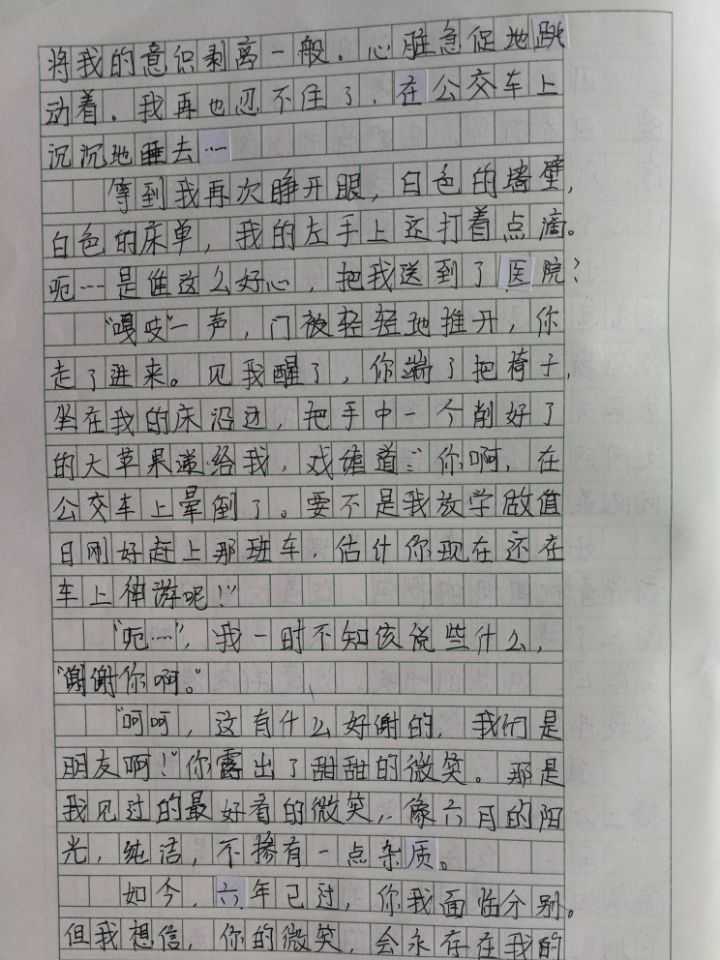 将我的意识剥离一般。心脏急促地跳
动着。我再也忍不住了，在公交车上
沉沉地睡去…
等到我再次睁开眼，白色的墙壁，
白色的床单，我的左手上还打着点滴。
呃…是谁这么好心，把我送到了医院？
“嘎吱”一声，门被轻轻地推开，你
走了进来。见我醒了，你端了把椅子，
坐在我的床沿边，把手中一个削好了
的大苹果递给我，戏谑道：“你啊，在
公交车上晕倒了。要不是我放学做值
日刚好赶上那班车，估计你现在还在
车上神游呢！”
“呃…”，我一时不知该说些什么，
“谢谢你啊。”
“呵呵，这有什么好谢的，我们是
朋友啊！”你露出了甜甜的微笑。那是
我见过的最好看的微笑，像六月的阳
光，纯洁，不掺有一点杂质。
如今，六年已过，你我面临分别。
但我想信，你的微笑，会永存在我的